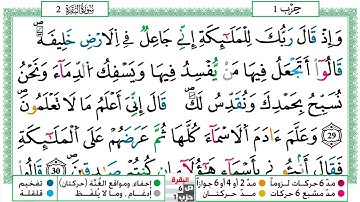 حِزْب 1 سُورَةُ الْبَقَرَةِ 2
وَإِذْ قَالَ رَبُّكَ لِلْمَلَٰٓئِكَةِ إِنِّے جَاعِلٞ فِے اِ۬لَارْضِ خَلِيفَةٗۖ
قَالُوٓاْ أَتَجْعَلُ فِيهَا مَنْ يُّفْسِدُ فِيهَا وَيَسْفِكُ اُ۬لدِّمَآءَ وَنَحْنُ
نُسَبِّحُ بِحَمْدِكَ وَنُقَدِّسُ لَكَۖ قَالَ إِنِّيَ أَعْلَمُ مَا لَا تَعْلَمُونَۖ
29 وَعَلَّمَ ءَادَمَ اَ۬لَاسْمَآءَ كُلَّهَا ثُمَّ عَرَضَهُمْ عَلَى اَ۬لْمَلَٰٓئِكَةِ
فَقَالَ أَنۢبِـُٔونِے بِأَسْمَآءِ هَٰٓؤُلَآءِ ان كُنتُمْ صَٰدِقِينَۖ 30 قَالُواْ
مدّ 6 حركات لزوماً مدّ 2 أو 4 أو 6 جوازاً البقرة ص 6 حزب 1 إخفاء، ومواقع الغُنَّة (حركتان) تفخيم
مدّ مشبع 6 حركات مدّ حركتان إدغام، وما لا يُلفظ قلقلة